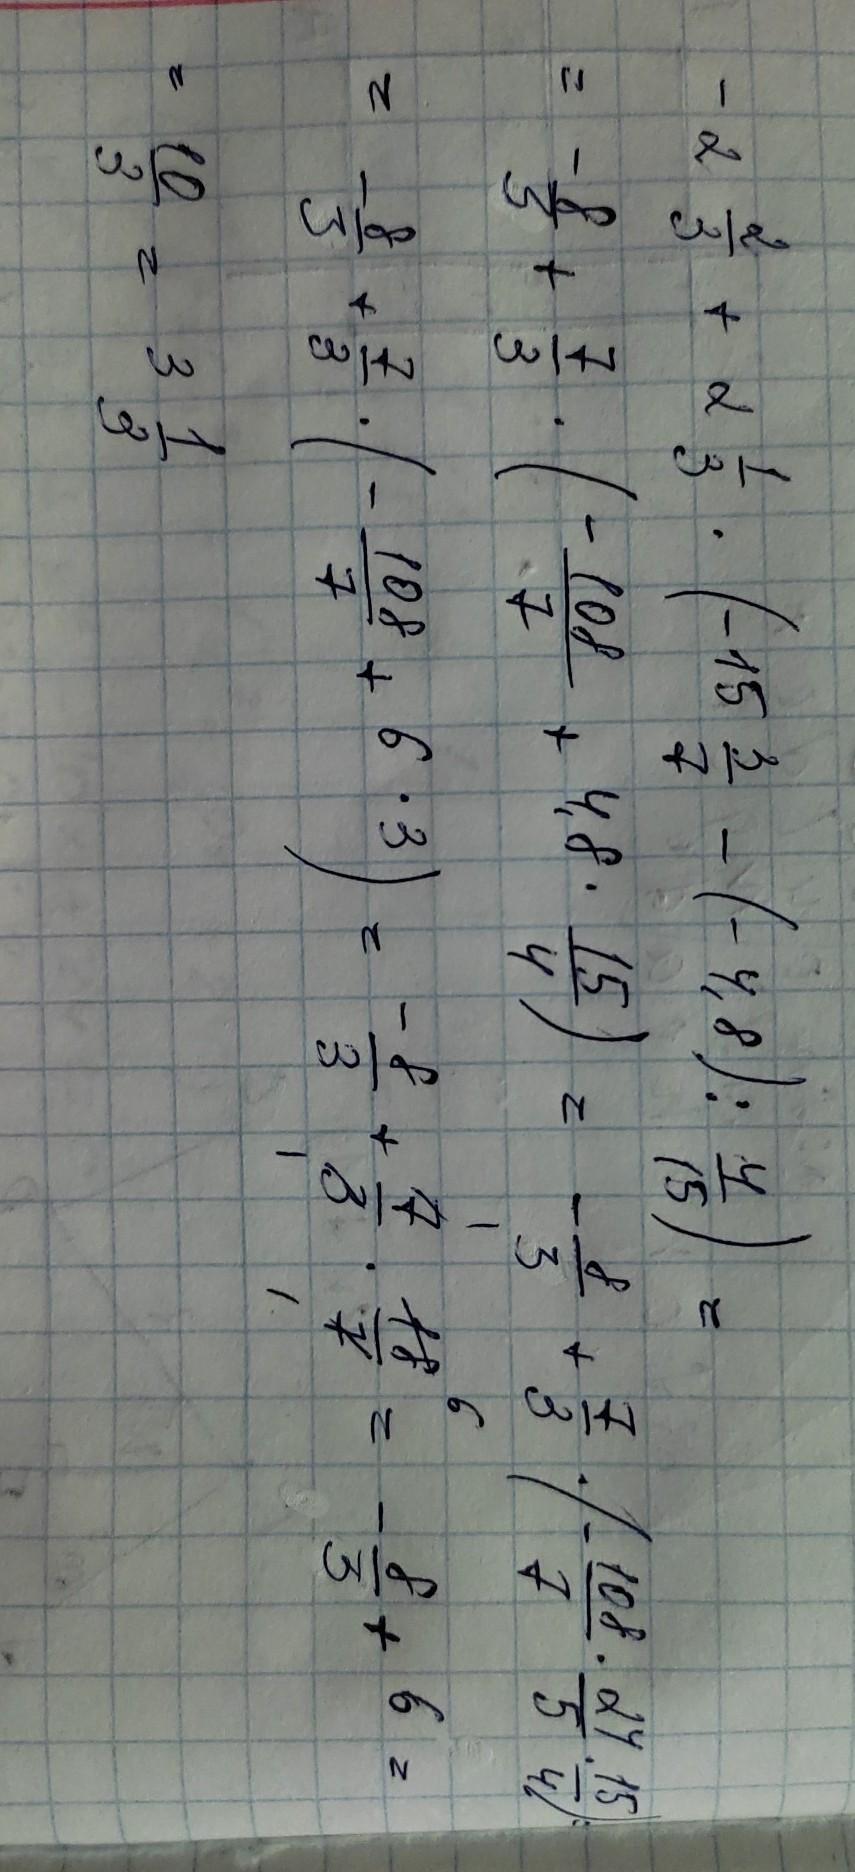 -2 2/3 + 2 1/3 · (-15 3/7 - (-4,8) : 4/15) =
= -8/3 + 7/3 · (-108/7 + 4,8 · 15/4) = -8/3 + 7/3 · (-108/7 · 24/5 · 15/4) =
= -8/3 + 7/3 · (-108/7 + 6 · 3) = -8/3 + 7/3 · 18/7 = -8/3 + 6 =
= 10/3 = 3 1/3